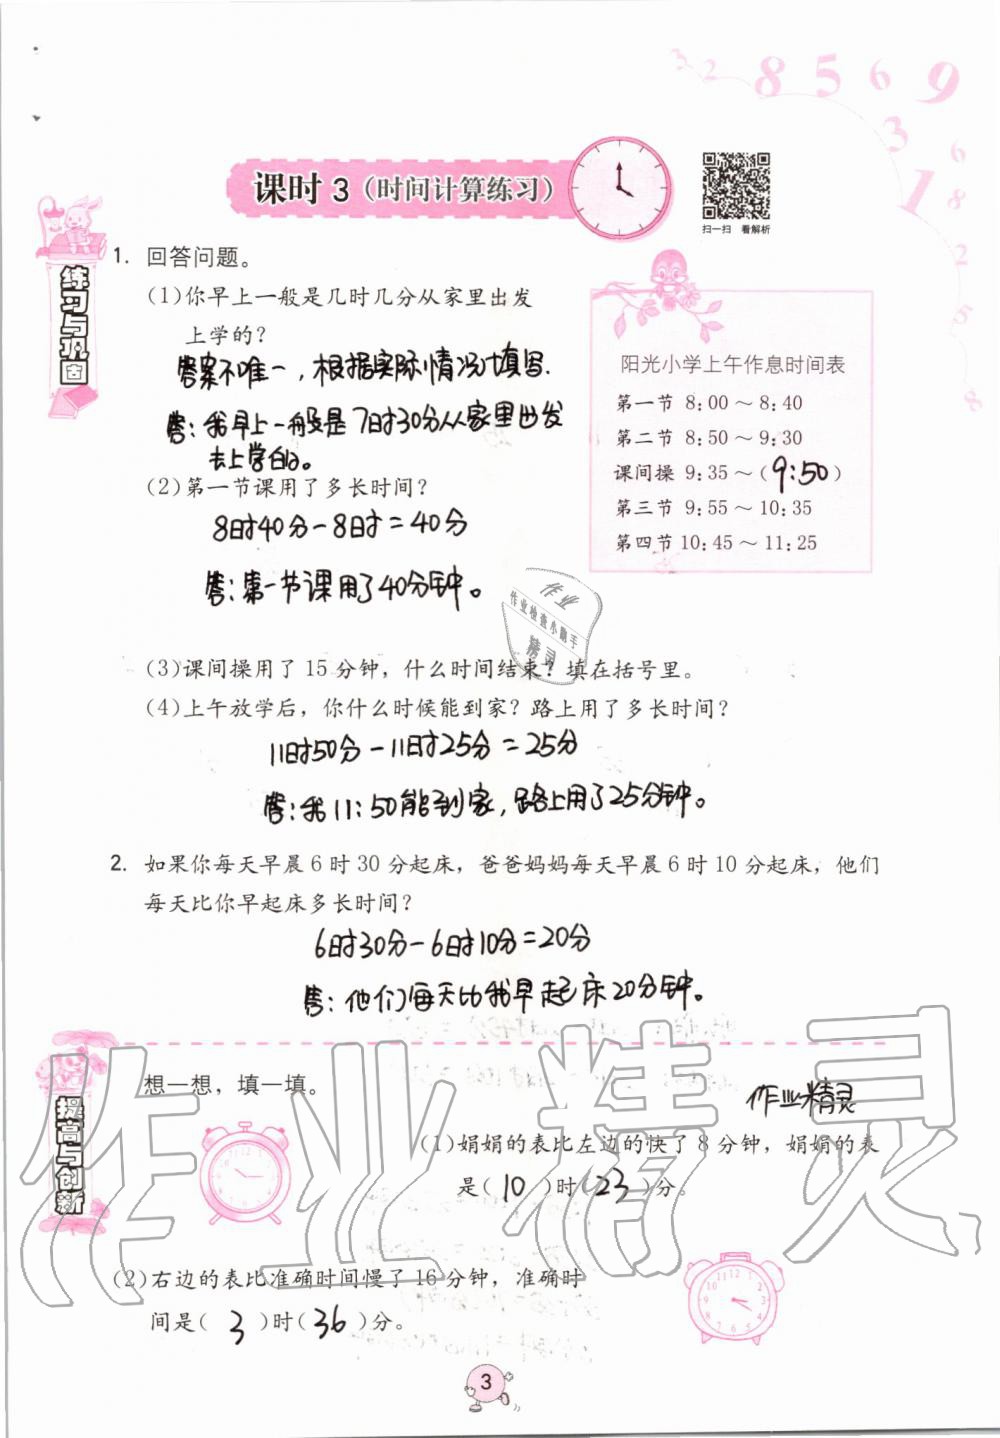 3 2 8 5 6 9
3
6
1
8
2
5
8
课时 3（时间计算练习）
扫一扫 看解析
练习与巩固
1. 回答问题。
(1)你早上一般是几时几分从家里出发
上学的？
答案不唯一，根据实际情况计填写.
答：我早上一般是7时30分从家里出发
去上学的。
阳光小学上午作息时间表
第一节 8：00～8：40
第二节 8：50～9：30
课间操 9：35～（9:50）
第三节 9：55～10：35
第四节 10：45～11：25
(2)第一节课用了多长时间？
8时40分－8时＝40分
答：第一节课用了40分钟。
作业
作业检查小助手
精灵
(3)课间操用了 15 分钟，什么时间结束？填在括号里。
(4)上午放学后，你什么时候能到家？路上用了多长时间？
11时50分－11时25分＝25分
答：我11：50能到家，路上用了25分钟。
2. 如果你每天早晨 6 时 30 分起床，爸爸妈妈每天早晨 6 时 10 分起床，他们
每天比你早起床多长时间？
6时30分－6时10分＝20分
答：他们每天比我早起床20分钟。
提高与创新
想一想，填一填。
作业精灵
作业精灵
(1)娟娟的表比左边的快了 8 分钟，娟娟的表
是（10）时（23）分。
(2)右边的表比准确时间慢了 16 分钟，准确时
间是（3）时（36）分。
3